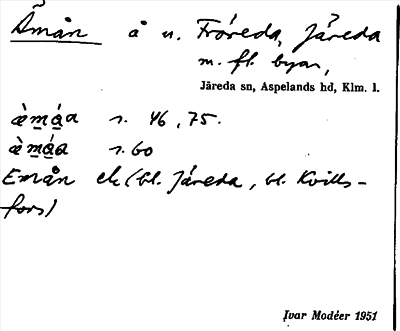 Åmån å n. Fröreda, Järeda
m. fl. byar,
Järeda sn, Aspelands hd, Klm. l.
æ̀m̲á̲a r. 46, 75.
æ̀m̲á̲a r. 60
Emån ek (bl. Järeda, bl. Kvills-
fors)
Ivar Modéer 1951